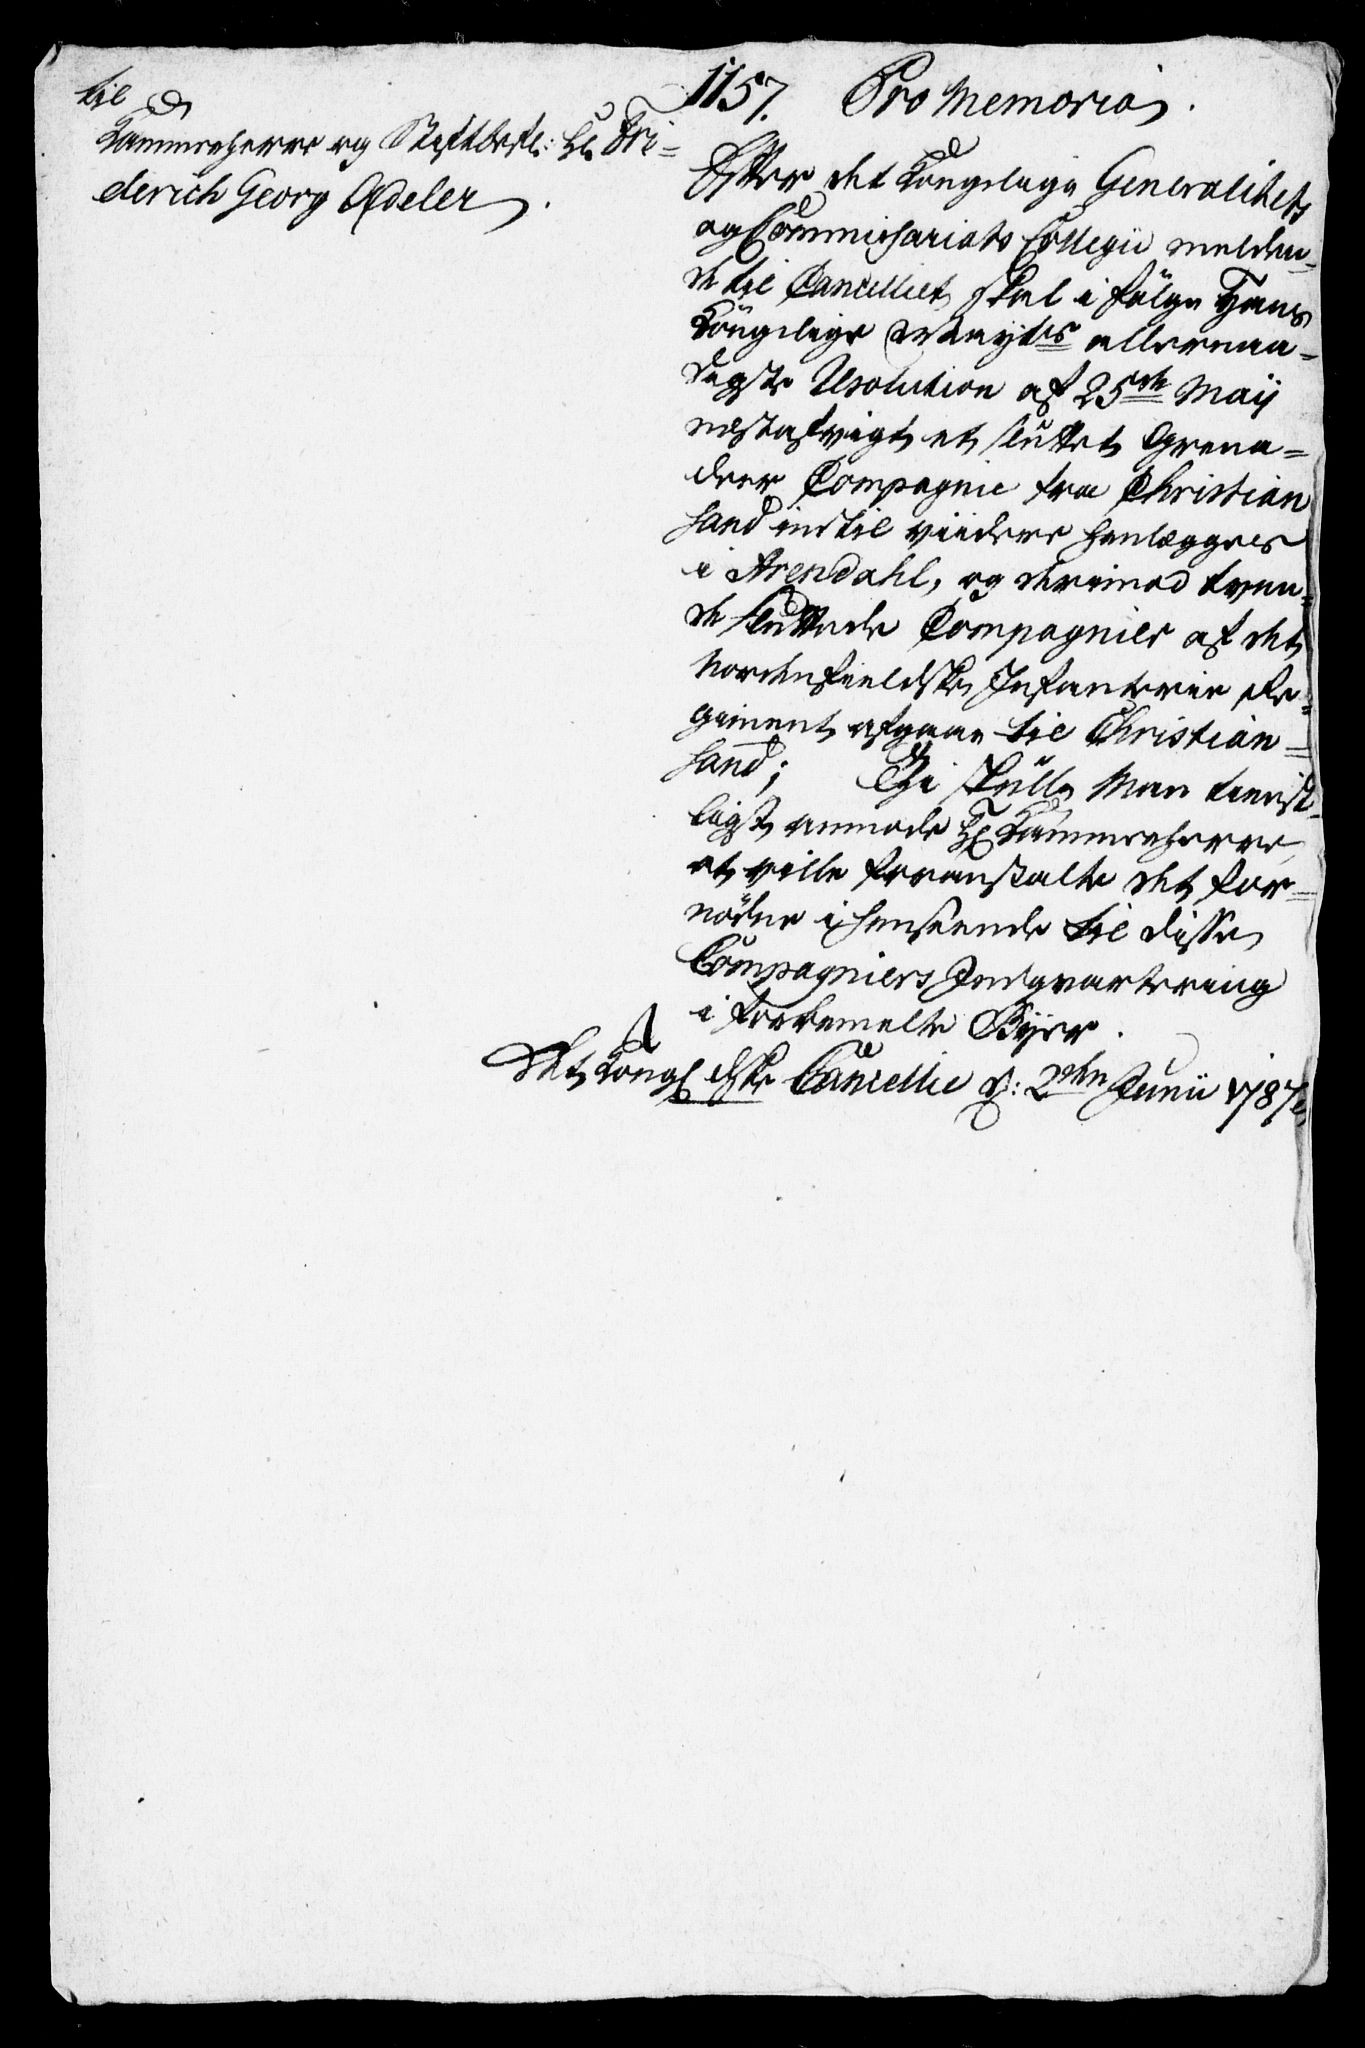 til
Kammerherre og Stiftbefl: Hr. Fri=
derich Georg Adeler.
1157. Pro Memoria.
Efter det Kongelige Generalitets
og Commissariats Collegii melden=
de til Cancelliet, skal i følge Hans
Kongelige Mayts allernaa=
digste Resolution af 25de Maij
nestafvigt et sluttet Grena=
deer Compagnie fra Christian
sand indtil viidere henlægges
i Arendahl, og derimod tven=
de sluttede Compagnier af det
Nordenfieldske Infanterie Re=
giment afgaae til Christian=
sand; Thi skulle Man tienst=
ligst anmode Hr Kammerherre,
at ville foranstalte det for=
nødne i henseende til disse
Compagniers Indqvartering
i forbemelte Byer.
Det Kongl dske Cancellie d: 2den Junii 1787,